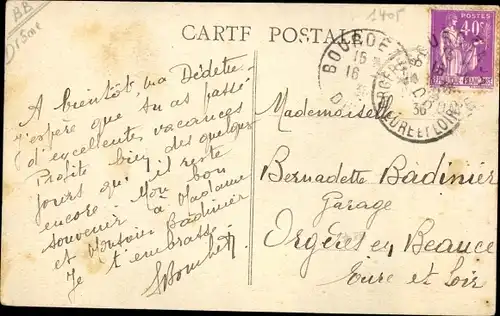 BB
Drôme
1405
CARTE POSTALE
BOURDE
15
16
36
EURE ET LOIR
POSTES
40c
REPUBLIQUE FRANÇAISE
A bientôt, ma Dédette
J'espère que tu as passé
d'excellentes vacances
Profite bien des quelques
jours qu'il reste
encore. Mon bon
souvenir à Madame
et Monsieur Badinier
Je t'embrasse
Mademoiselle
Bernadette Badinier
Garage
Orgères en Beauce
Eure et Loir